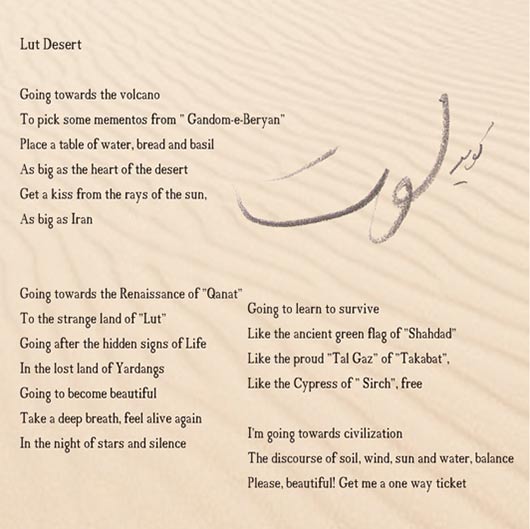 Lut Desert
Going towards the volcano
To pick some mementos from " Gandom-e-Beryan"
Place a table of water, bread and basil
As big as the heart of the desert
Get a kiss from the rays of the sun,
As big as Iran
کویر
لوت
Going towards the Renaissance of "Qanat"
To the strange land of "Lut"
Going after the hidden signs of Life
In the lost land of Yardangs
Going to become beautiful
Take a deep breath, feel alive again
In the night of stars and silence
Going to learn to survive
Like the ancient green flag of "Shahdad"
Like the proud "Tal Gaz" of "Takabat",
Like the Cypress of " Sirch", free
I'm going towards civilization
The discourse of soil, wind, sun and water, balance
Please, beautiful! Get me a one way ticket